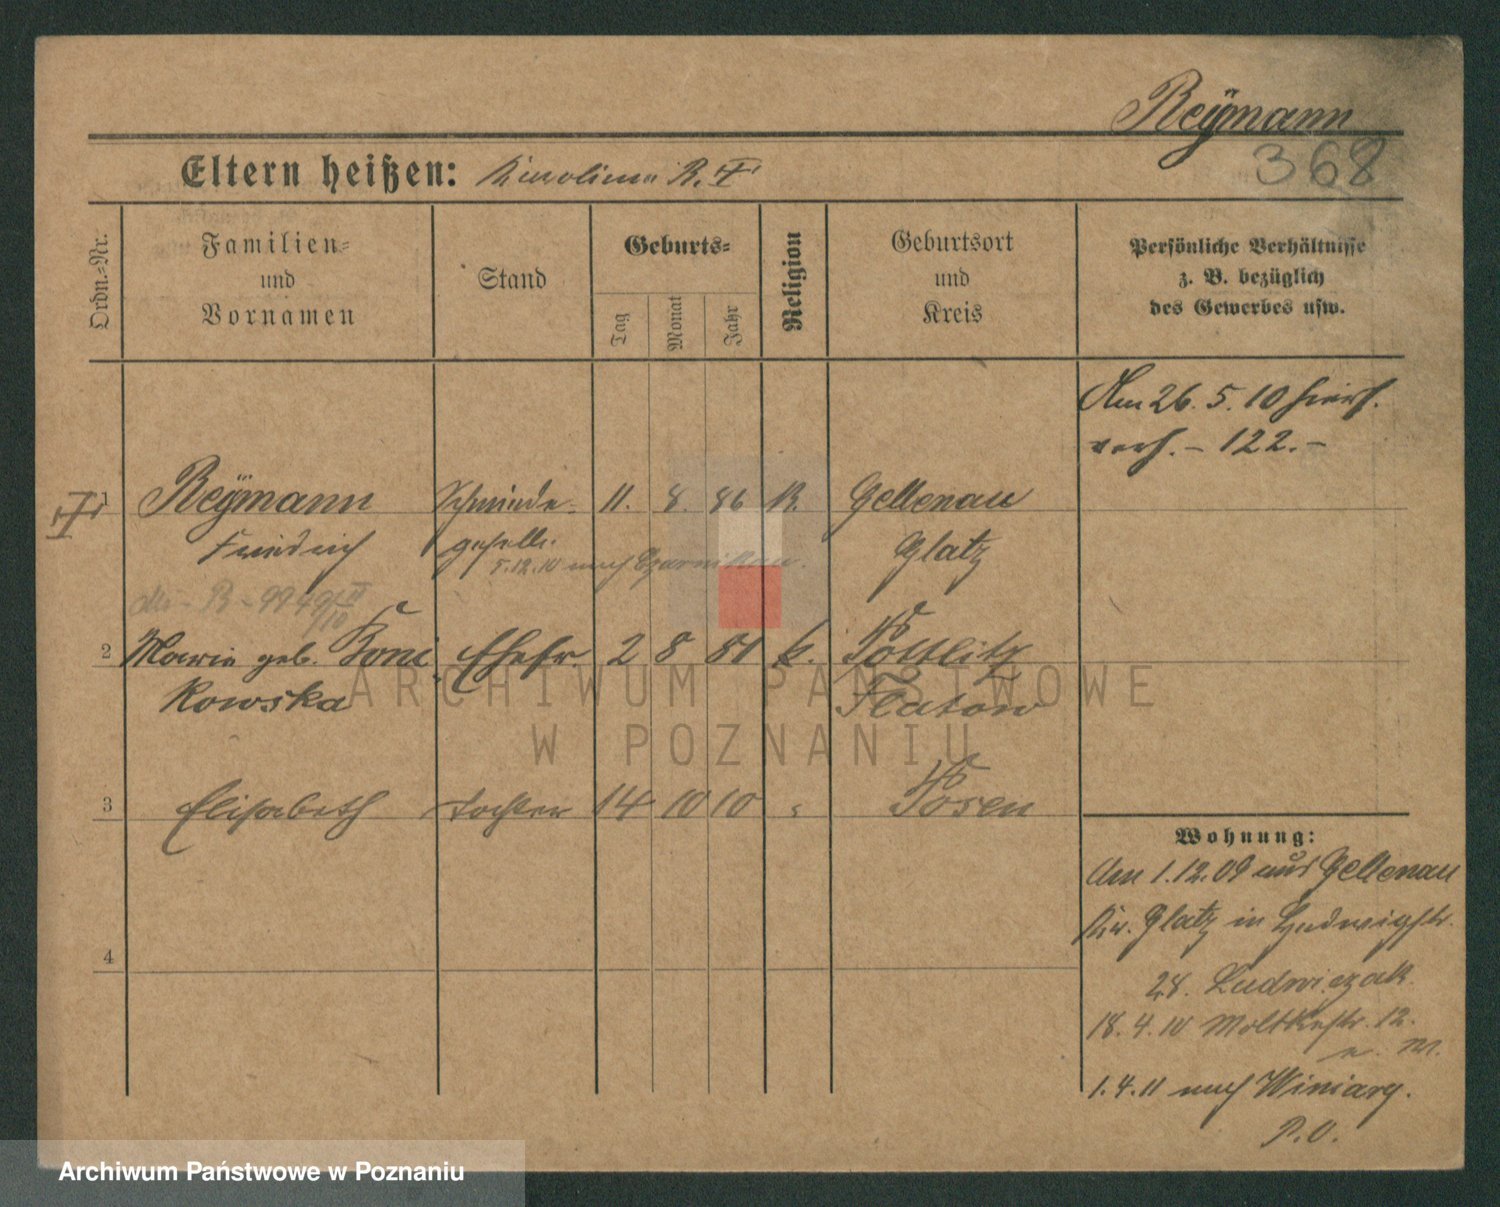 Reÿmann
368
Eltern heißen: Karolina R. ✝
Ordn.-Nr.
Familien-
und
Vornamen
Stand
Geburts-
Tag
Monat
Jahr
Religion
Geburtsort
und
Kreis
Persönliche Verhältnisse
z. B. bezüglich
des Gewerbes usw.
Am 26. 5. 10 hiers.
verh. – 122. –
1 Reÿmann Schmiede- 11. 8. 86 K. Gellenau
Friedrich geselle. Glatz
5.12.10 nach Czarnikau.
2 Marie geb. Koni Ehefr. 2 8 81 k. Pottlitz
kowska Flatow
3 Elisabeth Tochter 14 10 10 Posen
Wohnung:
Am 1.12.09 aus Gellenau
Kr. Glatz in Ludwigstr.
28. Ludwiczak
18.4.10 Moltkestr. 12.
4
1.4.11 nach Winiary.
P.O.
ARCHIWUM PAŃSTWOWE
W POZNANIU
Archiwum Państwowe w Poznaniu